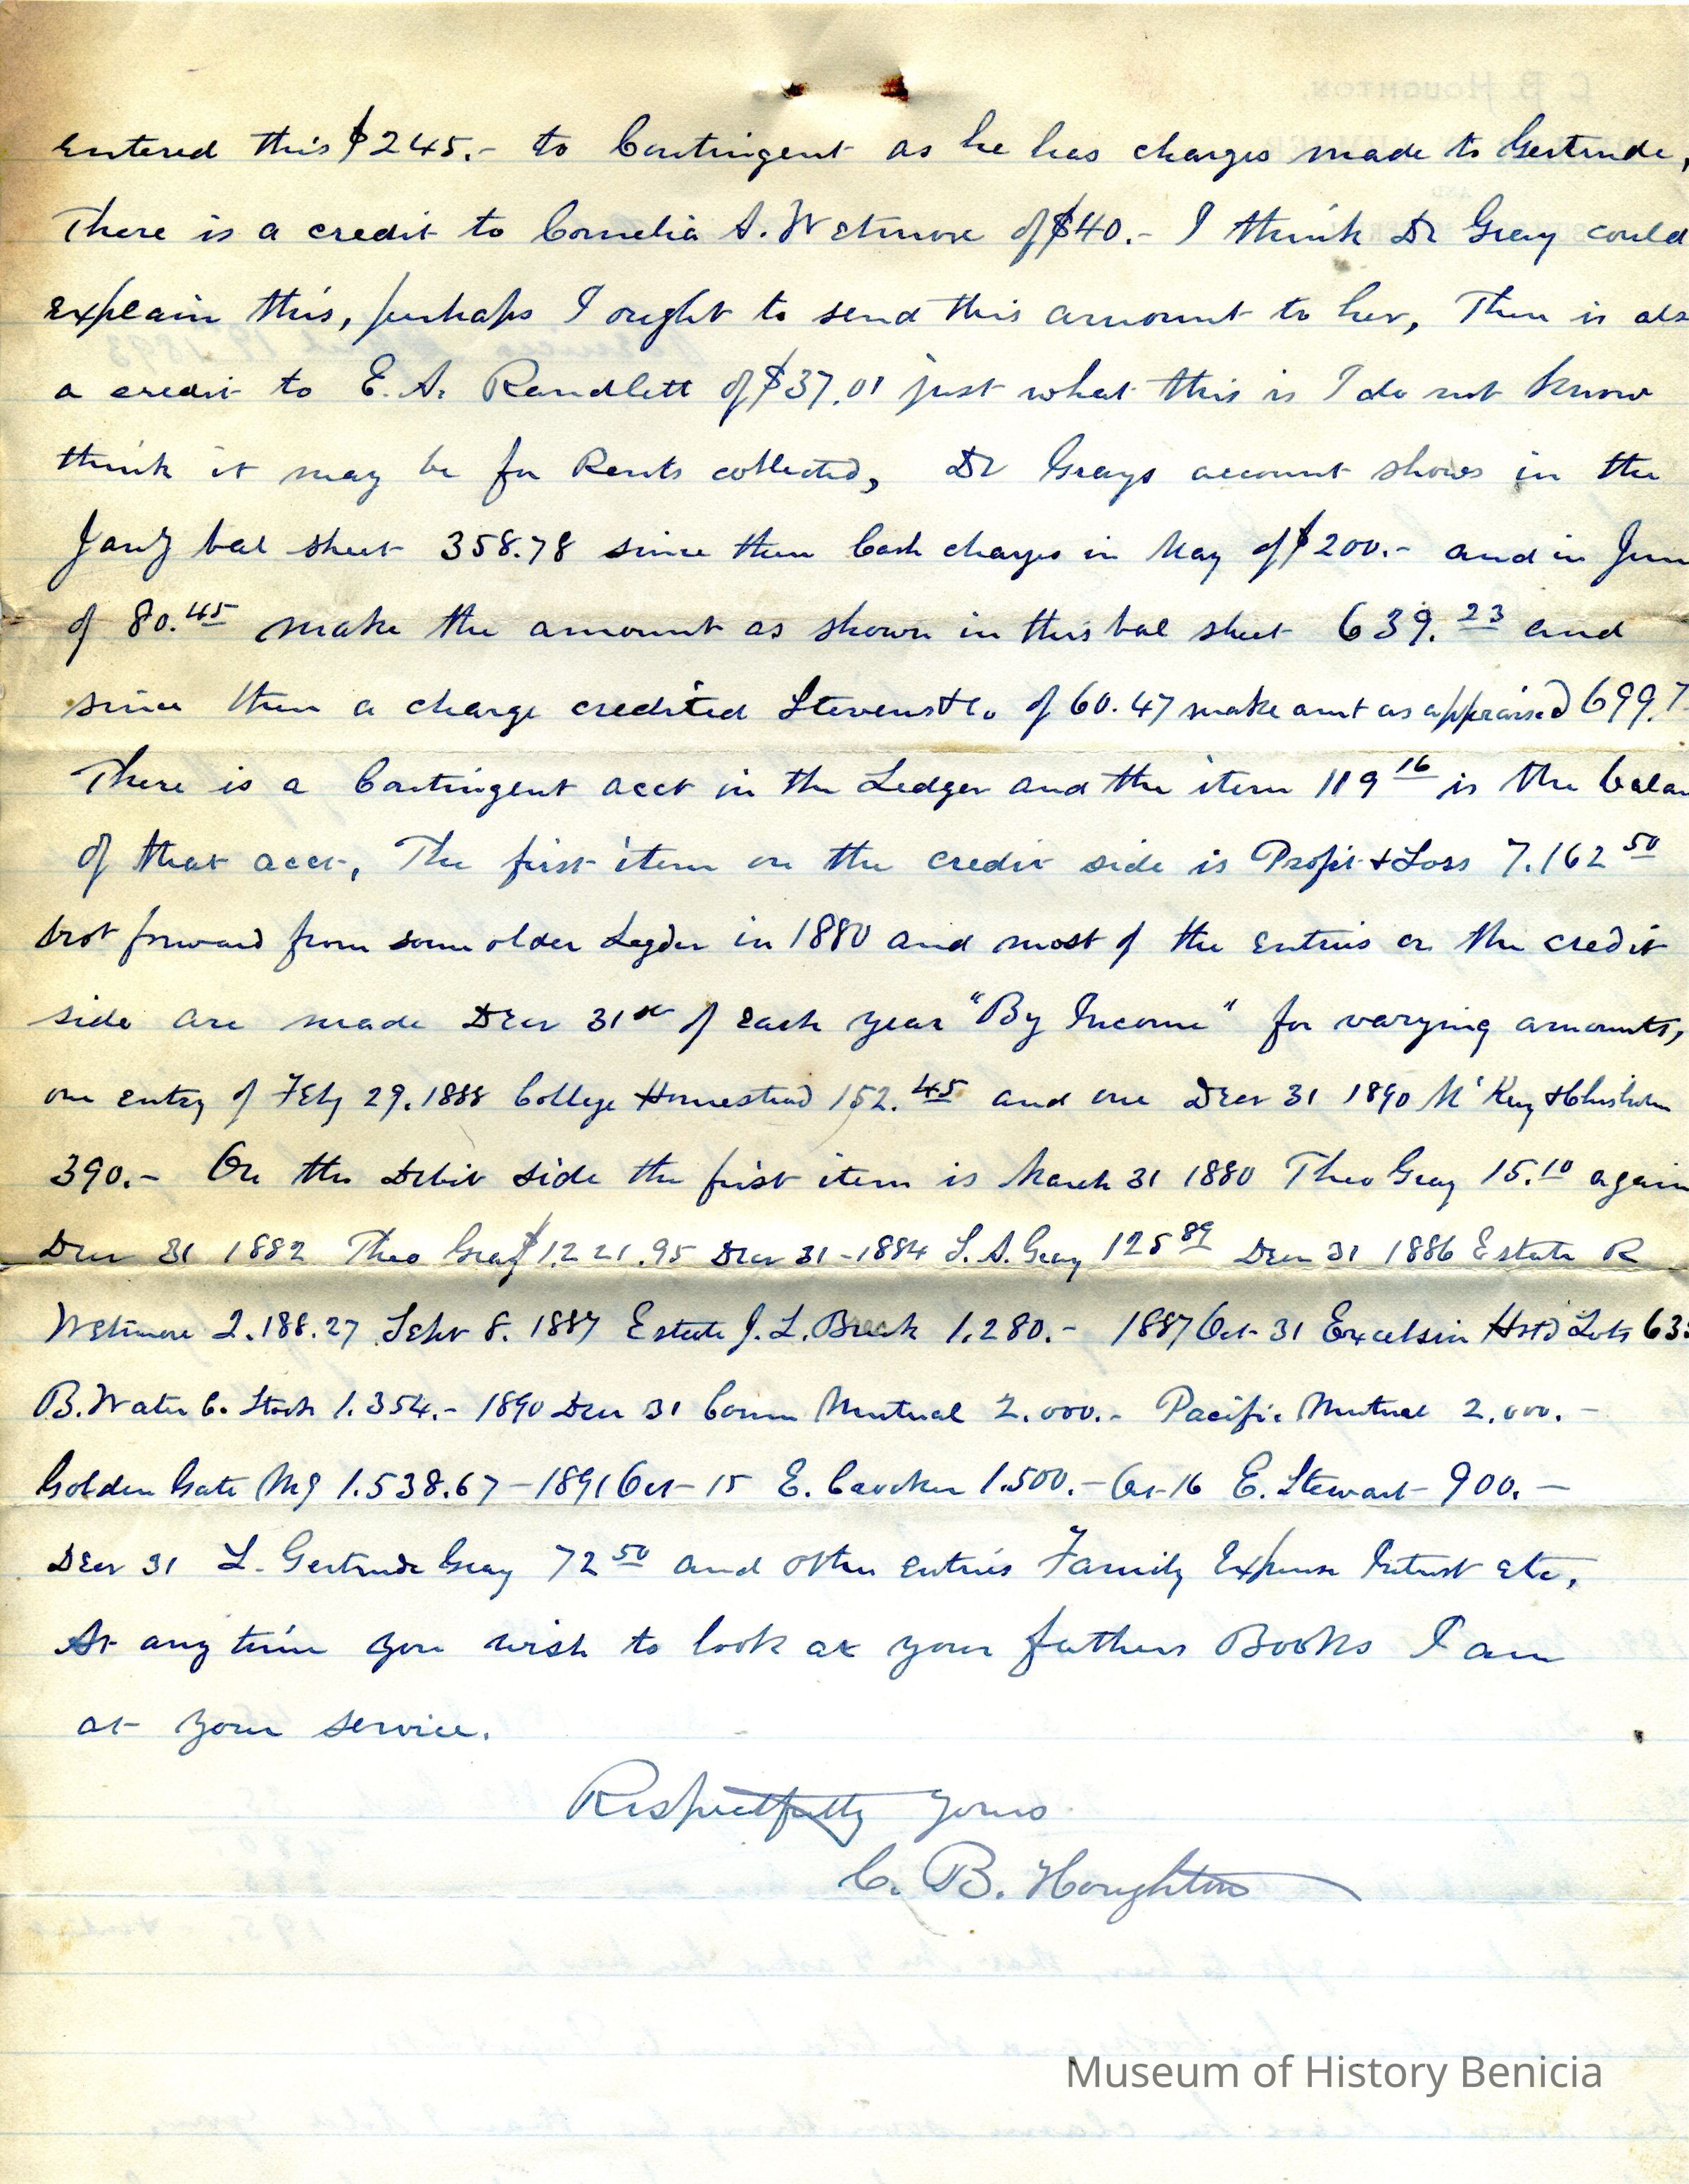 entered this $245.- to Contingent as he has charges made to Gertrude,
There is a credit to Cornelia A. Wetmore of $40.- I think Dr Gray could
explain this, perhaps I ought to send this amount to her, Then is als
a credit to E. A. Randlett of $37.01 just what this is I do not know
think it may be for Rents collected, Dr Grays account shows in the
Jany bal sheet 358.78 since then Cash charges in May of $200.- and in Jun
of 80.45 make the amount as shown in this bal sheet 639.23 and
since then a charge credited Stevens & Co of 60.47 make amt as appraised 699.7
There is a Contingent acct in the Ledger and the item 119 16 is the balan
of that acct, The first item on the credit side is Profit & Loss 7.162 50
brot forward from some older Legder in 1880 and most of the entries on the credit
side are made Decr 31st of each year "By Income" for varying amounts,
one entry of Feby 29.1888 College Homestead 152.45 and one Decr 31 1890 McKay & Chisholm
390.- On the Debit side the first item is March 31 1880 Theo Gray 15.10 again
Decr 31 1882 Theo Gray $1.221.95 Decr 31-1884 L. A. Gray 125 89 Decr 31 1886 Estate R
Wetmore 2.188.27 Sept 8. 1887 Estate J. L. Buck 1.280.- 1887 Oct 31 Excelsior Hstd Lots 63
B. Water Co Stock 1.354.- 1890 Decr 31 Conn Mutual 2.000.- Pacific Mutual 2.000.-
Golden Gate Mg 1.538.67 - 1891 Oct 15 E. Crocker 1.500.- Oct 16 E. Stewart 900.-
Decr 31 L. Gertrude Gray 72 50 and other entries Family Expense Intrust etc,
At any time you wish to look at your fathers Books I am
at your service.
Respectfully yours
C. B. Houghton
Museum of History Benicia